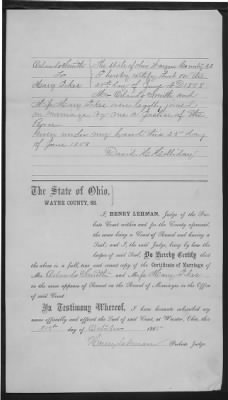 Orlando Smith The State of Ohio Wayne County SS
To I hereby certify that on the
Mary Fike 25th day of June AD 1858
Mr Orlando Smith and
Miss Mary Fike were legally joined
in marriage by me a Justice of the
Peace
Given under my hand this 25th day
of June 1858
David
The State of Ohio,
WAYNE COUNTY, SS.
I, HENRY LEHMAN, Judge of the Pro-
bate Court within and for the County aforesaid,
the same being a Court of Record and having a
Seal; and I, the said Judge, being by law the
keeper of said Seal, Do Hereby Certify that
the above is a full, true and exact copy of the Certificate of Marriage of
Mr. Orlando Smith and Miss Mary Fike
as the same appears of Record in the Record of Marriages in the Office
of said Court.
In Testimony Whereof, I have hereunto subscribed my
name officially and affixed the Seal of said Court, at Wooster, Ohio, this
day of October
Henry Lehman
Probate Judge